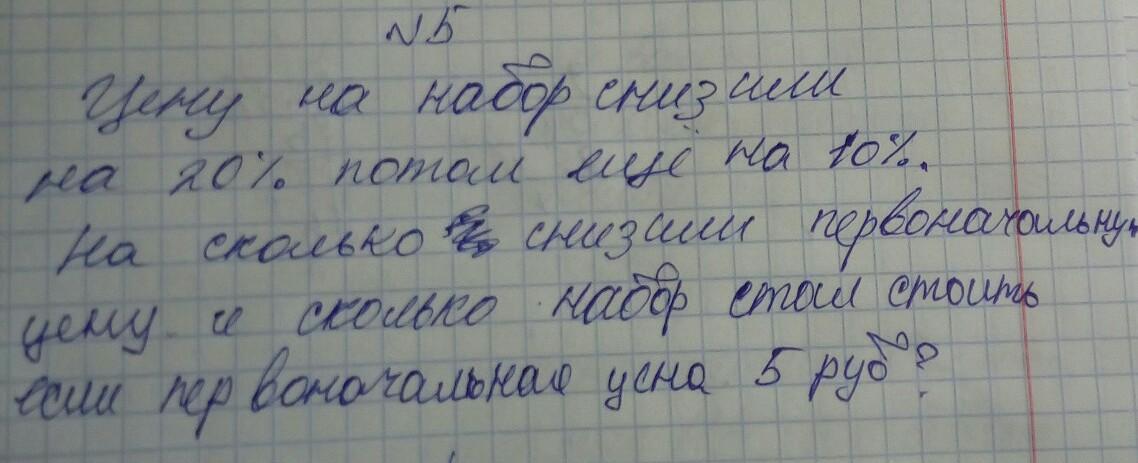 №5
Цену на набор снизили
на 20% потом ещё на 10%.
На сколько снизили первоначальную
цену и сколько набор стал стоить
если первоначальная цена 5 руб?